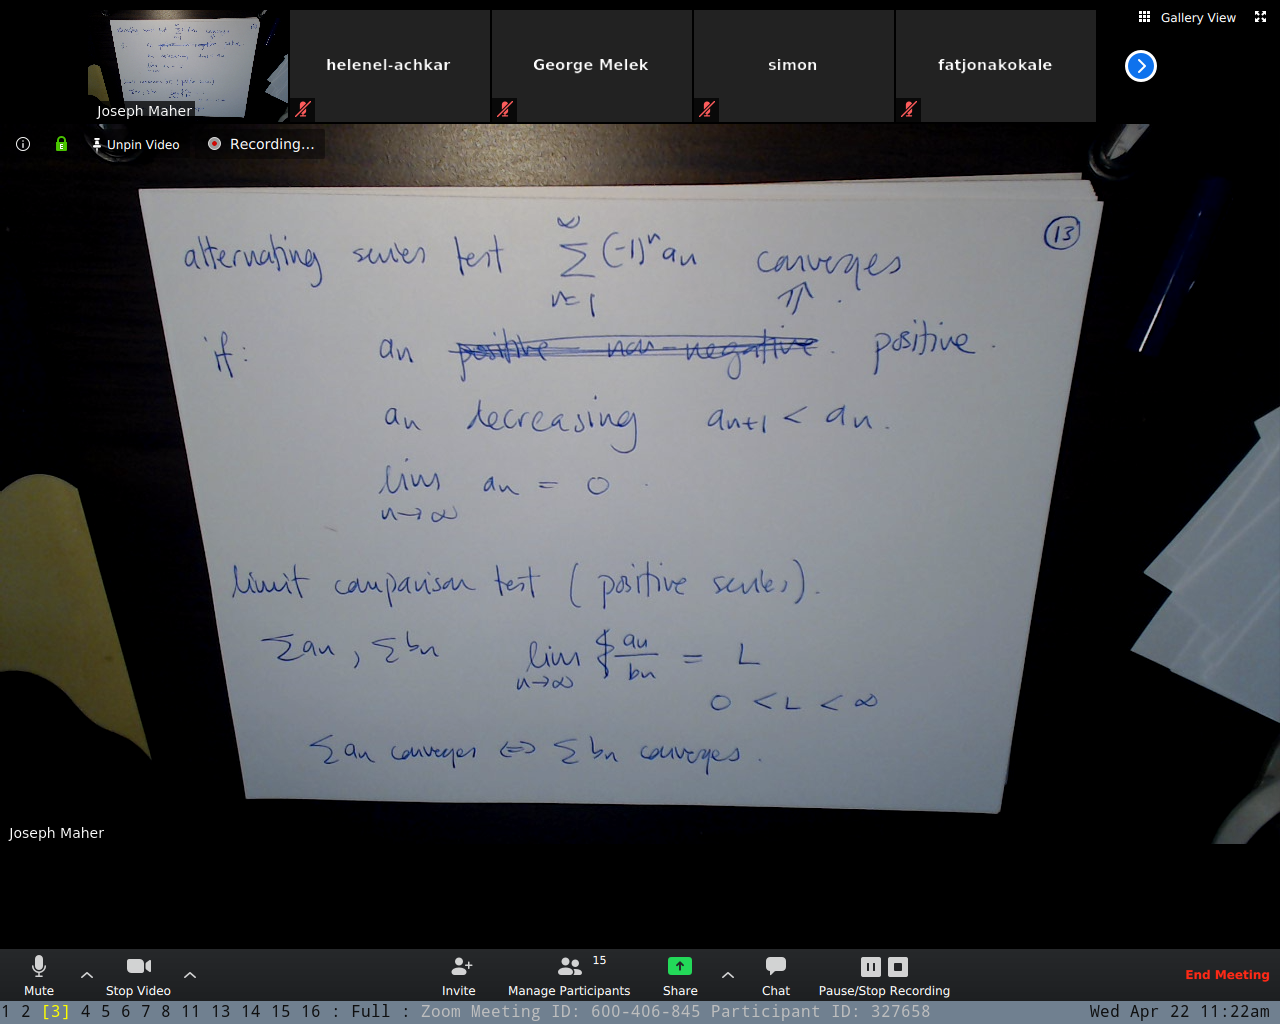 Gallery View
helenel-achkar
George Melek
simon
fatjonakokale
Joseph Maher
Unpin Video
Recording...
13
alternating series test ∞ Σ n=1 (-1)^n an converges
⇑ .
if: an positive non-negative . positive .
an decreasing an+1 < an .
lim n→∞ an = 0 .
limit comparison test (positive series).
Σ an , Σ bn lim n→∞ an/bn = L
0 < L < ∞
Σ an converges ⇔ Σ bn converges .
Joseph Maher
Mute
Stop Video
Invite
Manage Participants
15
Share
Chat
Pause/Stop Recording
End Meeting
1 2 [3] 4 5 6 7 8 11 13 14 15 16 : Full : Zoom Meeting ID: 600-406-845 Participant ID: 327658
Wed Apr 22 11:22am